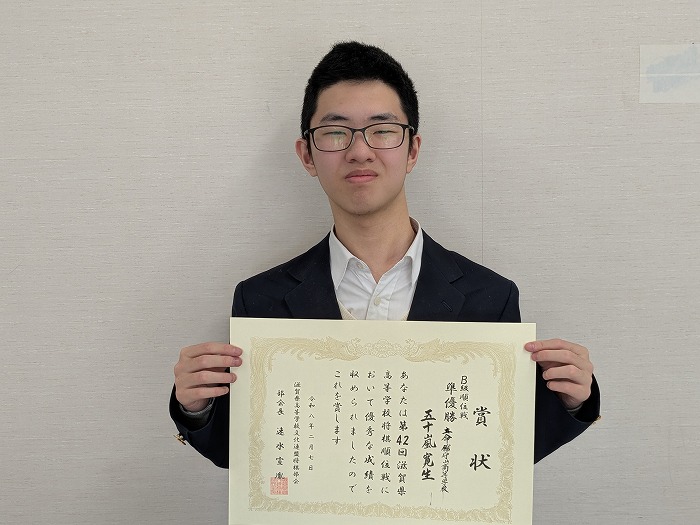 賞状
B級順位戦
準優勝 立命館守山高等学校
五十嵐寛生
あなたは第42回滋賀県
高等学校将棋順位戦に
おいて優秀な成績を
収められましたので
これを賞します
令和八年二月七日
滋賀県高等学校文化連盟将棋部会
部会長 速水宣